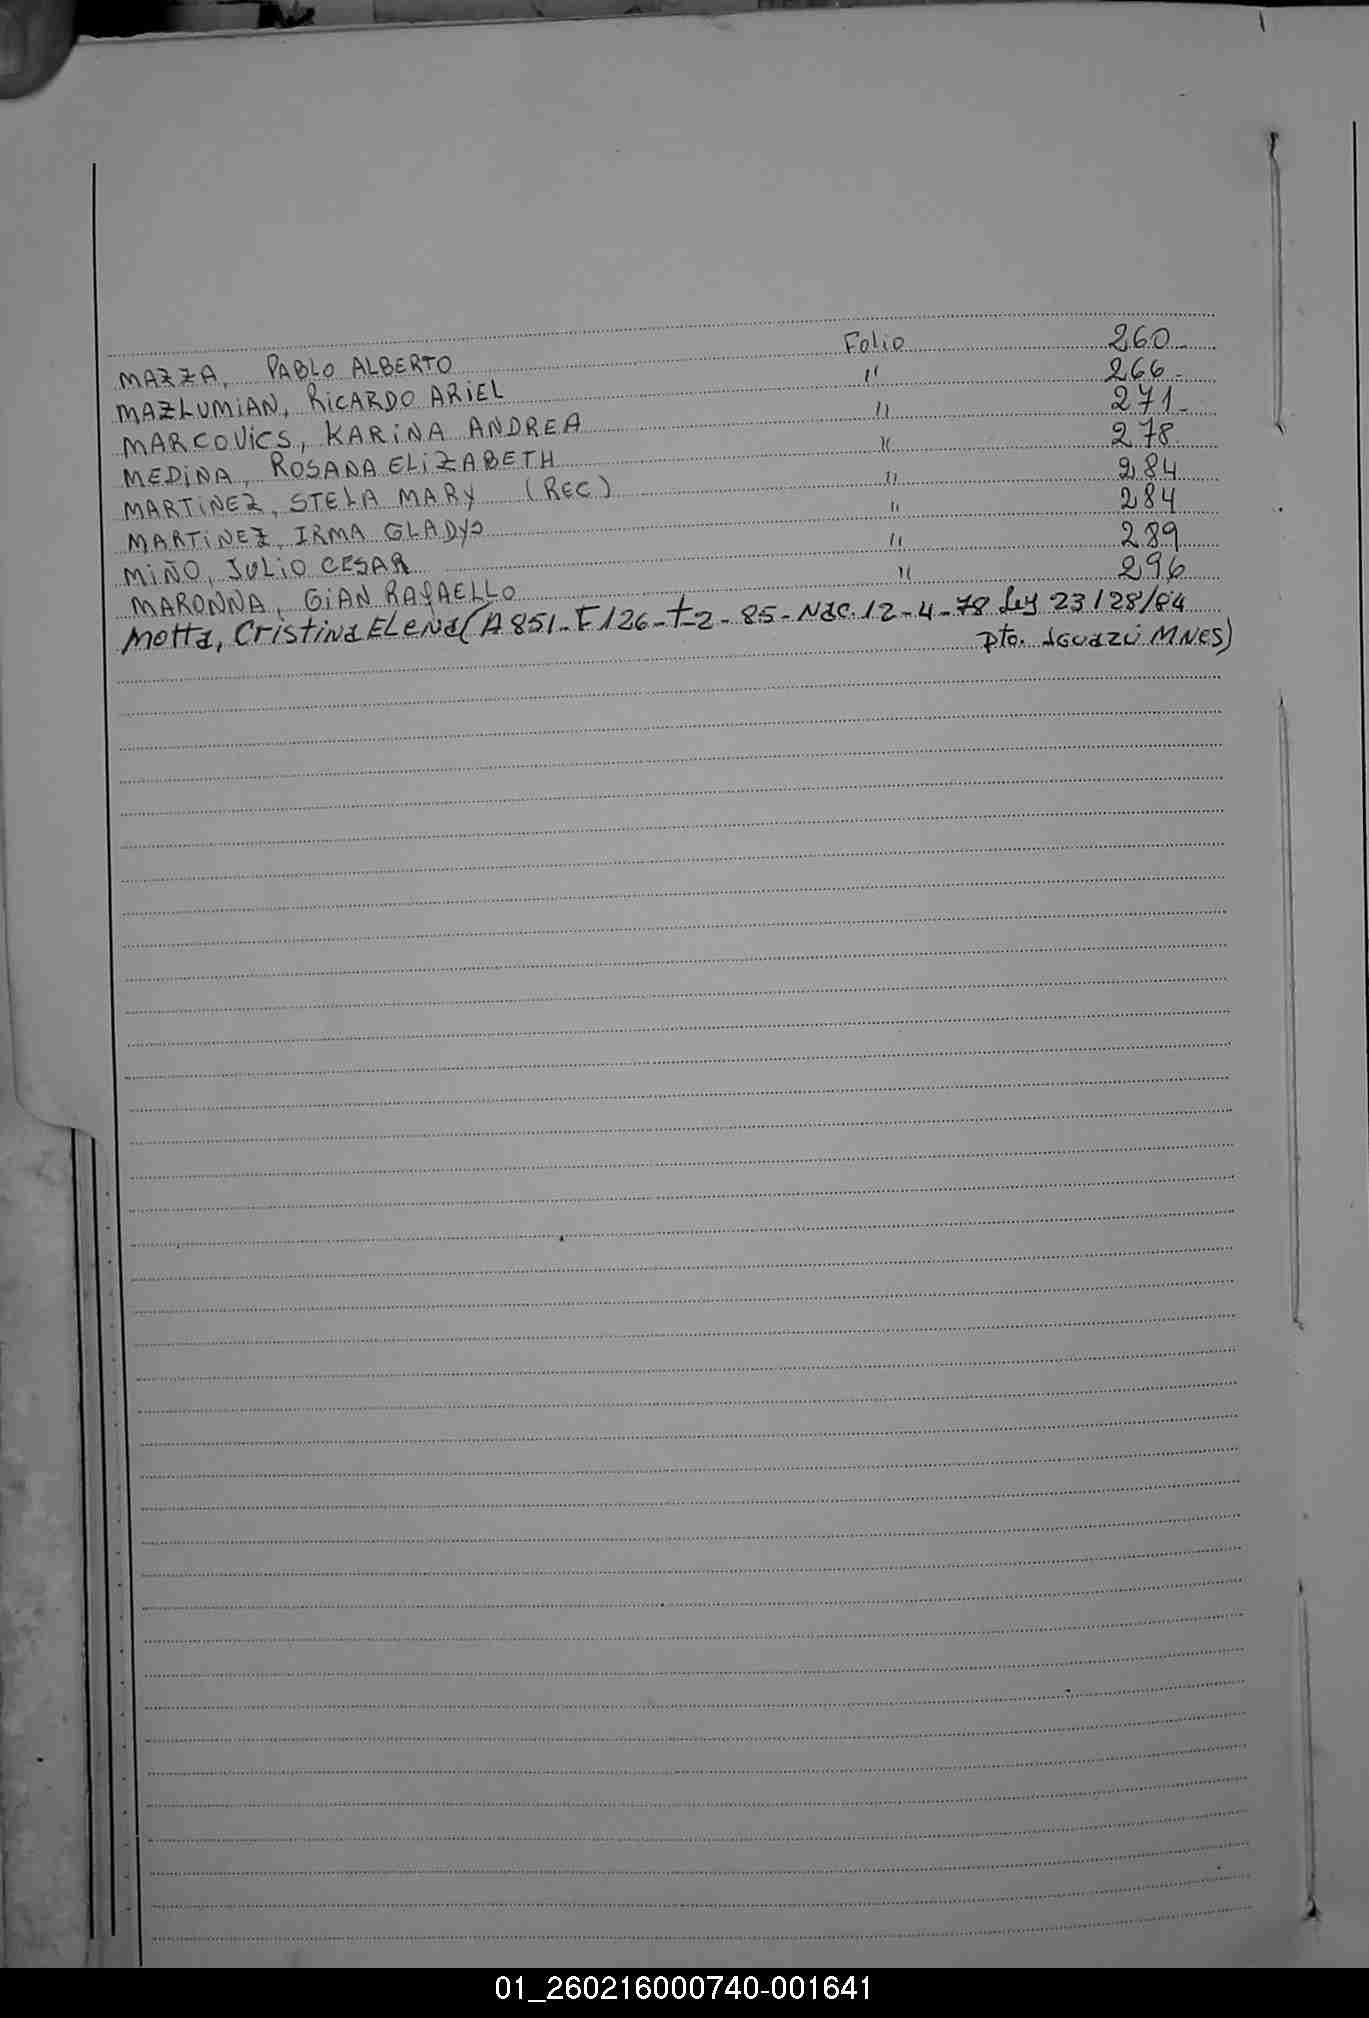 MAZZA, PABLO ALBERTO Folio 260
MAZLUMIAN, RICARDO ARIEL " 266
MARCOVICS, KARINA ANDREA " 271
MEDINA, ROSANA ELIZABETH " 278
MARTINEZ, STELA MARY (REC) " 284
MARTINEZ, IRMA GLADYS " 284
MIÑO, JULIO CESAR " 289
MARONNA, GIAN RAFAELLO " 296
Motta, Cristina Elena (A 851 - F 126 - t-2 - 85 - Nac. 12-4-78 Ley 23128/84
Pto. IGUAZÚ MNES)
01_260216000740-001641